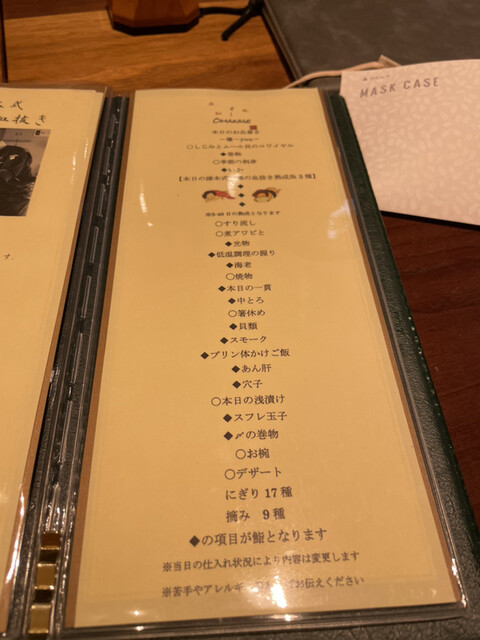 式
血抜き
MASK CASE
本日のお品書き
〇しじみとムール貝のロワイヤル
◆巻物
〇季節の刺身
◆いか
【本日の津本式 の血抜き熟成魚3種】
◆
◆
◆
日の熟成となります
〇すり流し
〇煮アワビと
◆光物
◆低温調理の握り
◆海老
〇焼物
◆本日の一貫
◆中とろ
〇箸休め
◆貝類
◆スモーク
◆プリン体かけご飯
◆あん肝
◆穴子
〇本日の浅漬け
◆スフレ玉子
◆〆の巻物
〇お椀
〇デザート
にぎり17種
摘み 9種
◆の項目が鮨となります
※当日の仕入れ状況により内容は変更します
※苦手やアレルギ お伝えください